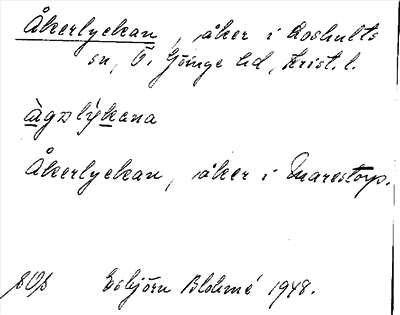 Åkerlyckan, åker i Loshults
sn, Ö. Göinge hd, Krist. l.
àgəlý̀kana
Åkerlyckan, åker i Marestorp.
Esbjörn Blohmé 1948.